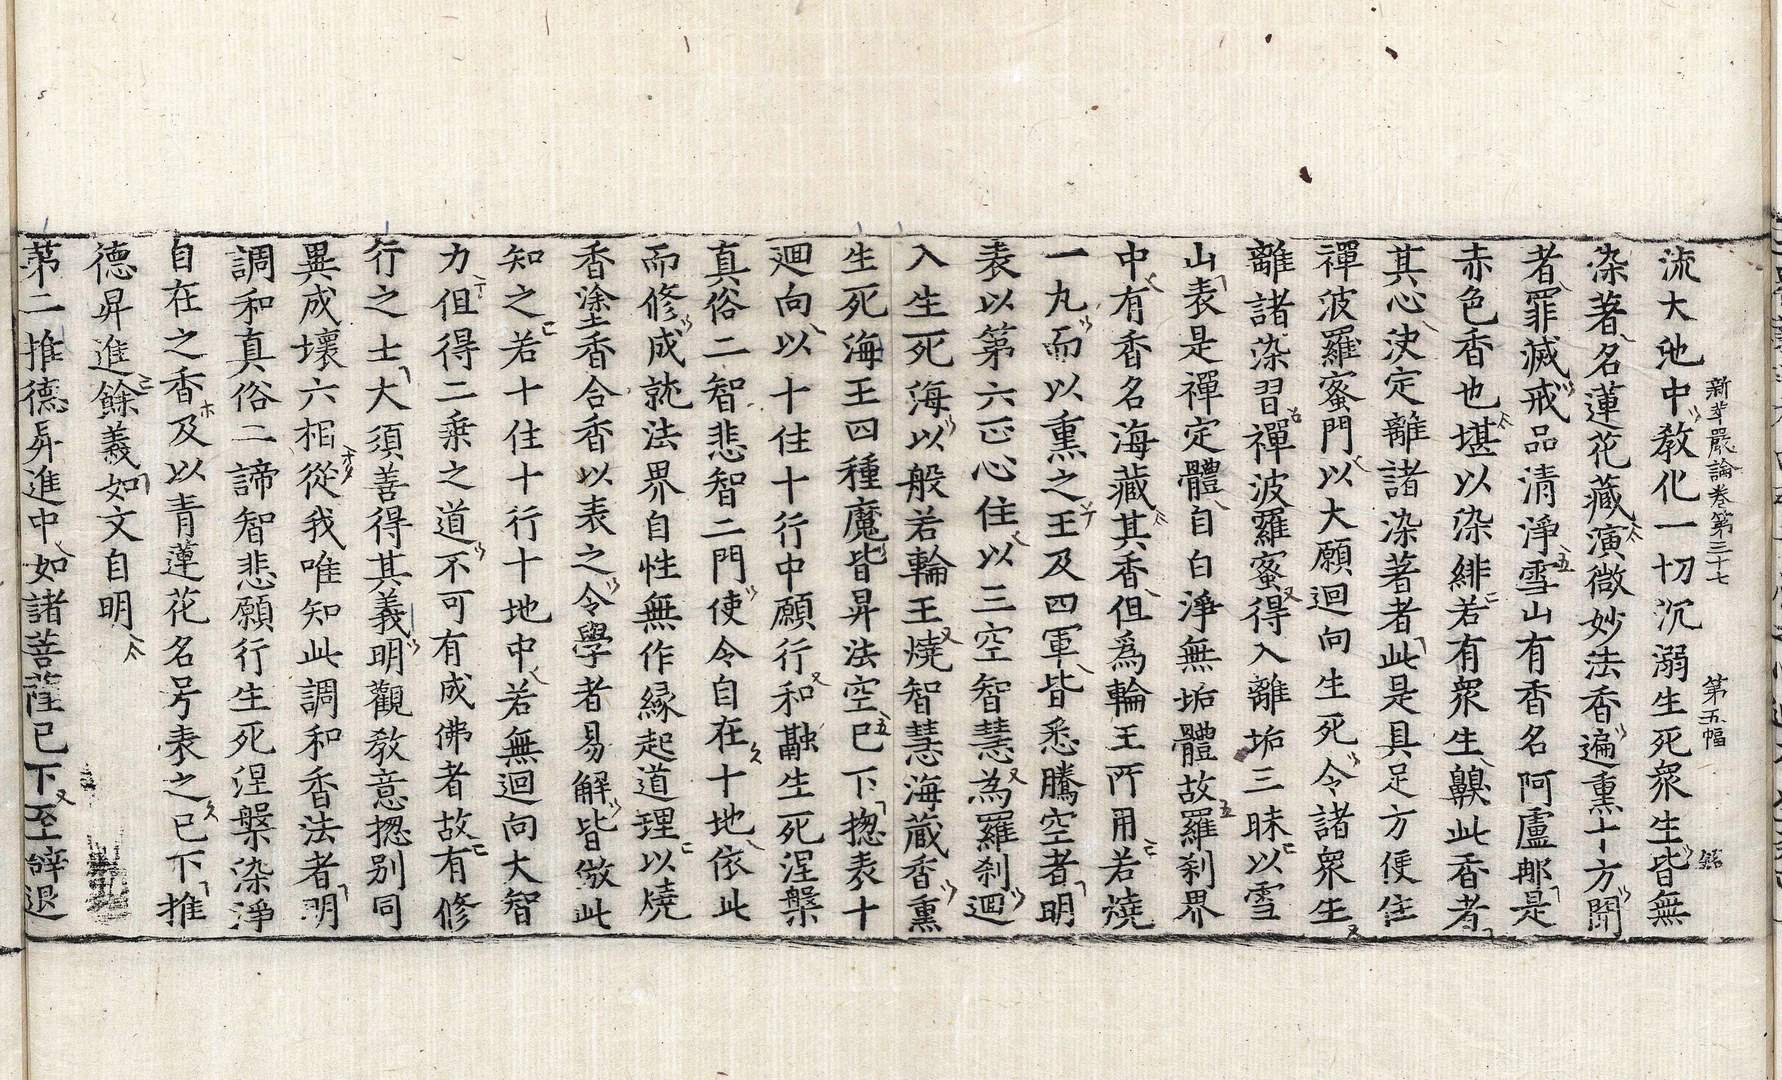 新華嚴論卷第三十七　第五幅　銘
流大池中教化一切沉溺生死衆生皆無
染著名蓮花藏演微妙法香遍熏十方聞
者罪滅戒品清淨雪山有香名阿盧那是
赤色香也堪以染緋若有衆生齅此香者
其心决定離諸染著者此是具足方便住
禪波羅蜜門以大願迴向生死令諸衆生
離諸染習禪波羅蜜得入離垢三昧以雪
山表是禪定體自白淨無垢體故羅刹界
中有香名海藏其香但爲輪王所用若燒
一丸而以熏之王及四軍皆悉騰空者明
表以第六正心住以三空智慧為羅刹迴
入生死海以般若輪王燒智慧海藏香熏
生死海王四種魔皆昇法空已下揔表十
迴向以十住十行中願行和融生死涅槃
真俗二智悲智二門使令自在十地依此
而修成就法界自性無作緣起道理以燒
香塗香合香以表之令學者易解皆倣此
知之若十住十行十地中若無迴向大智
力但得二乗之道不可有成佛者故有修
行之士大須善得其義明觀教意揔别同
異成壞六相從我唯知此調和香法者明
調和真俗二諦智悲願行生死涅槃染淨
自在之香及以青蓮花名号表之已下推
德昇進餘義如文自明
第二推德昇進中如諸菩薩已下至辤退